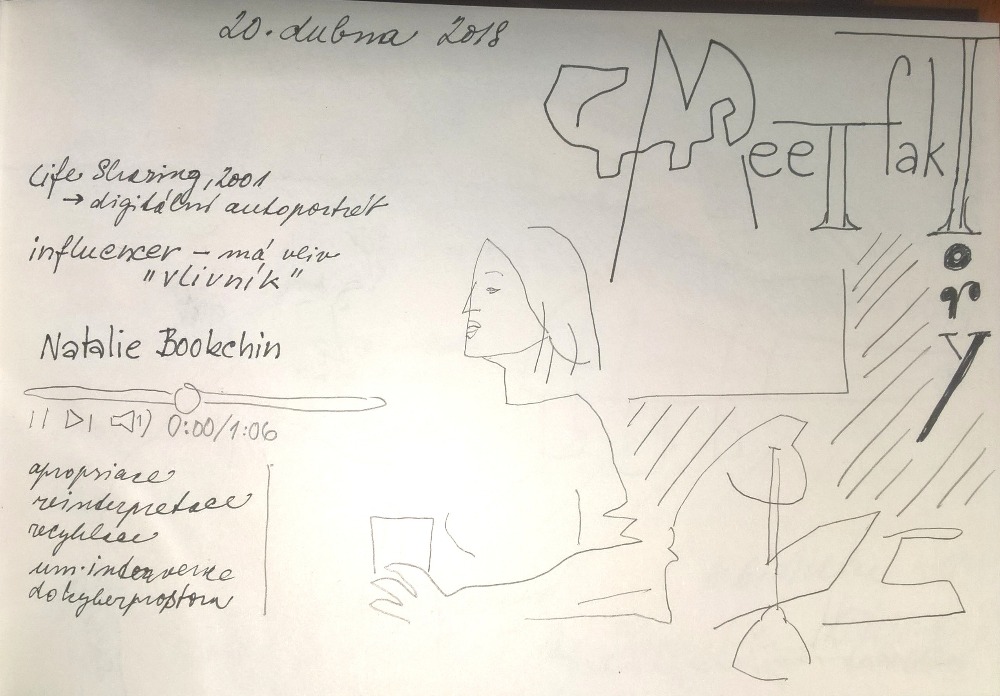 20. dubna 2018
MeeTfakTory
Life Sharing, 2001
→ digitální autoportrét
influencer – má vliv
"vlivník"
Natalie Bookchin
0:00/1:06
apropriace
reinterpretace
recyklace
um. intervence
do kyberprostoru